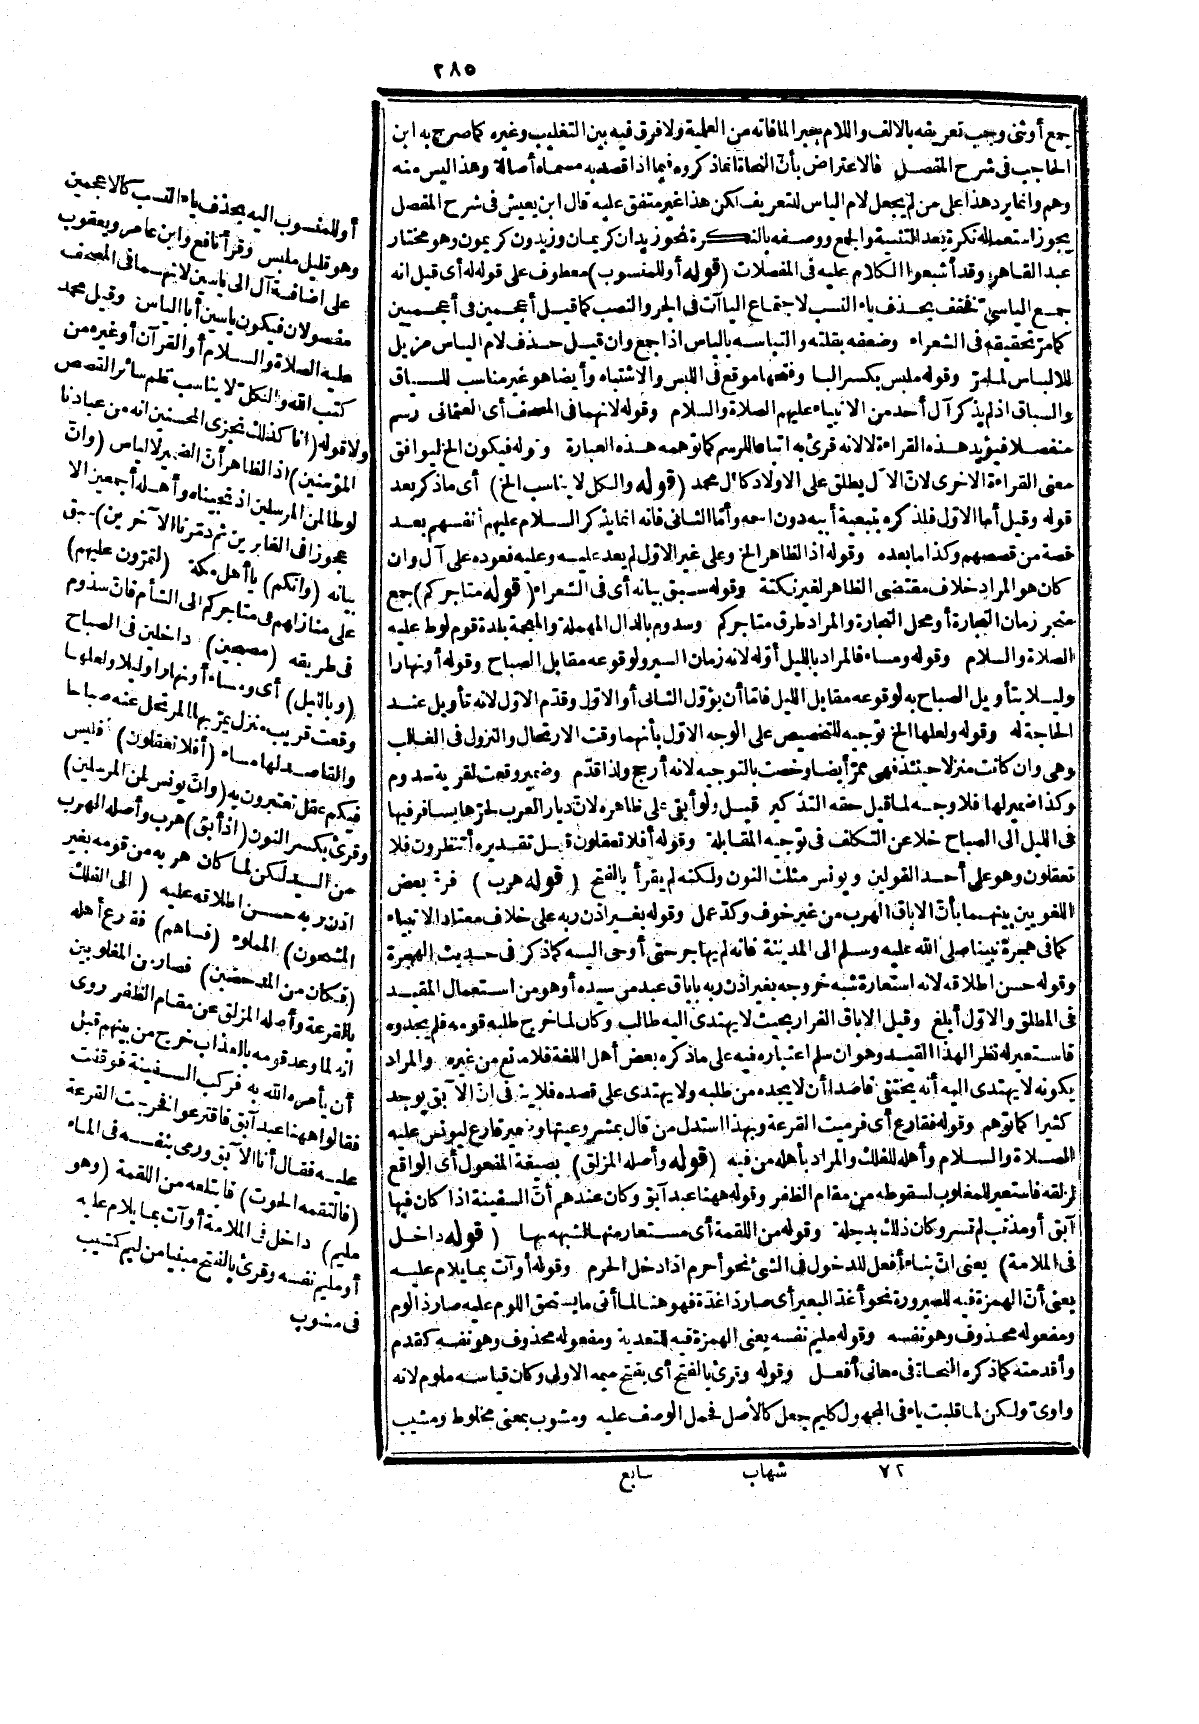 ٢٨٥
جمع أوثنى وجب تعريفه بالالف واللام جبرا لما فاته من العلمية ولا فرق فيه بين التغليب وغيره كما صرح به ابن
الحاجب فى شرح المفصل فالاعتراض بأنّ النحاة انما ذكروه فيما اذا قصد به مسماه أصالة وهذا ليس منه
وهم وانما يرد هذا على من لم يجعل لام الياس للتعريف لكن هذا غير متفق عليه قال ابن يعيش فى شرح المفصل
يجوز استعماله نكرة بعد التثنية والجمع ووصفه بالنكرة نحو زيدان كريمان وزيدون كريمون وهو مختار
عبد القاهر وقد أشبعوا الكلام عليه فى المفصلات (قوله أو للمنسوب) معطوف على قوله له أى قيل انه
جمع الياسىّ تخفف بحذف ياء النسب لاجتماع الياآت فى الجر والنصب كما قيل أعجمين فى أعجميين
كما مرّ تحقيقه فى الشعراء وضعفه بقلته والتباسه بالياس اذا جمع وان قيل حذف لام الياس مزيل
للالباس لما مرّ وقوله ملبس بكسر البا وفتحها موقع فى اللبس والاشتباه وأيضا هو غير مناسب للسياق
والسباق اذ لم يذكر آل أحد من الانبياء عليهم الصلاة والسلام وقوله لانهما فى المصحف أى العثمانى رسم
منفصلا فيؤيد هذه القراءة لا لانه قرئ به اتباعا للرسم كما توهمه هذه العبارة وقوله فيكون الخ ليوافق
معنى القراءة الاخرى لانّ الآل يطلق على الاولاد كآل محمد (قوله والكل لا يناسب الخ) أى ما ذكر بعد
قوله وقيل أما الاول فلذكره بتبعية أبيه دون اسمه وأمّا الثانى فانه انما يذكر السلام عليهم أنفسهم بعد
قصة من قصصهم وكذا ما بعده وقوله اذ الظاهر الخ وعلى غير الاول لم يعد عليه وعليه فعوده على آل وان
كان هو المراد خلاف مقتضى الظاهر لغير نكتة وقوله سبق بيانه أى فى الشعراء (قوله متاجركم) جمع
متجر زمان التجارة أو محل التجارة والمراد طرق متاجركم وسدوم بالدال المهملة والمعجمة بلدة قوم لوط عليه
الصلاة والسلام وقوله ومساء فالمراد بالليل أوّله لانه زمان السير ولوقوعه مقابل الصباح وقوله أو نهارا
وليلا بتأويل الصباح به لوقوعه مقابل الليل فامّا أن يؤوّل الثانى أو الاوّل وقدّم الاوّل لانه تأويل عند
الحاجة له وقوله ولعلها الخ توجيه للتخصيص على الوجه الاوّل بأنهما وقت الارتحال والنزول فى الغالب
وهى وان كانت منزلا حينئذ فهى ممرّ أيضا وخصت بالتوجيه لانه أرجح ولذا قدّم وضمير وقعت لقرية سدوم
وكذا ضمير لها فلا وجه لما قيل حقه التذكير قيل ولو أبقى على ظاهره لانّ ديار العرب لحرّها يسافر فيها
فى الليل الى الصباح خلا عن التكلف فى توجيه المقابلة وقوله أفلا تعقلون قيل تقديره أتنظرون فلا
تعقلون وهو على أحد القولين ويونس مثلث النون ولكنه لم يقرأ بالفتح (قوله هرب) فرق بعض
اللغويين بينهما بأنّ الاباق الهرب من غير خوف وكدّ عمل وقوله بغير اذن ربه على خلاف معتاد الانبياء
كما فى هجرة نبينا صلى الله عليه وسلم الى المدينة فانه لم يهاجر حتى أوحى اليه كما ذكر فى حديث الهجرة
وقوله حسن اطلاقه لانه استعارة شبه خروجه بغير اذن ربه باباق عبد من سيده أو هو من استعمال المقيد
فى المطلق والاوّل أبلغ وقيل الاباق الفرار بحيث لا يهتدى اليه طالب وكان لما خرج طلبه قومه فلم يجدوه
فاستعير له نظر الهذا القيد وهو ان سلم اعتباره فيه على ما ذكره بعض أهل اللغة فلا مانع من غيره والمراد
بكونه لا يهتدى اليه أنه يختفى قاصدا أن لا يجده من طلبه ولا يهتدى على قصده فلا ينافى انّ الآبق يوجد
كثيرا كما توهم وقوله فقارع أى فرميت القرعة وبهذا استدل من قال بمشروعيتها وضمير قارع ليونس عليه
الصلاة والسلام وأهله للفلك والمراد بأهله من فيه (قوله وأصله المزلق) بصيغة المفعول أى الواقع
لزلقه فاستعير للمغلوب لسقوطه من مقام الظفر وقوله ههنا عبد آبق وكان عندهم أنّ السفينة اذا كان فيها
آبق أو مذنب لم تسر وكان ذلك بدجلة وقوله من اللقمة أى مستعار منها لشبهه بها (قوله داخل
فى الملامة) يعنى انّ بناء أفعل للدخول فى الشئ نحو أحرم اذا دخل الحرم وقوله أو آت بما يلام عليه
يعنى أنّ الهمزة فيه للصيرورة نحو أغدّ البعير أى صار ذا غدّة فهو هنا لما أتى ما يستحق اللوم عليه صار ذا لوم
ومفعوله محذوف وهو نفسه وقوله مليم نفسه يعنى الهمزة فيه للتعدية ومفعوله محذوف وهو نفسه كقدم
وأقدمته كما ذكره النحاة فى معانى أفعل وقوله وقرئ بالفتح أى بفتح ميمه الاولى وكان قياسه ملوم لانه
واوىّ ولكن لما قلبت ياء فى المجهول كليم جعل كالأصل فحمل الوصف عليه ومشوب بمعنى مخلوط ومشيب
أو للمنسوب اليه بحذف ياء النسب كالاعجمين
وهو قليل ملبس وقرأ نافع وابن عامر ويعقوب
على اضافة آل الى ياسين لانهما فى المصحف
مفصولان فيكون ياسين أبا الياس وقيل محمد
عليه الصلاة والسلام أو القرآن أو غيره من
كتب الله والكلّ لا يناسب نظم سائر القصص
ولا قوله (انا كذلك نجزى المحسنين انه من عبادنا
المؤمنين) اذ الظاهر أنّ الضمير لالياس (وانّ
لوطا لمن المرسلين اذ نجيناه وأهله أجمعين الا
عجوزا فى الغابرين ثم دمّرنا الآخرين) سبق
بيانه (وانكم) يا أهل مكة (لتمرّون عليهم)
على منازلهم فى متاجركم الى الشأم فانّ سدوم
فى طريقه (مصبحين) داخلين فى الصباح
(وبالليل) أى ومساء أو نهارا وليلا ولعلها
وقعت قريب منزل يمرّ بها المرتحل عنه صباحا
والقاصد لها مساء (أفلا تعقلون) أفليس
فيكم عقل تعتبرون به (وانّ يونس لمن المرسلين)
وقرئ بكسر النون (اذ أبق) هرب وأصله الهرب
من السيد لكن لما كان هربه من قومه بغير
اذن ربه حسن اطلاقه عليه (الى الفلك
المشحون) المملوء (فساهم) فقارع أهله
(فكان من المدحضين) فصار من المغلوبين
بالقرعة وأصله المزلق عن مقام الظفر روى
انه لما وعد قومه بالعذاب خرج من بينهم قبل
أن يأمره الله به فركب السفينة فوقفت
فقالوا ههنا عبد آبق فاقترعوا فخرجت القرعة
عليه فقال أنا الآبق ورمى بنفسه فى الماء
(فالتقمه الحوت) فابتلعه من اللقمة (وهو
مليم) داخل فى الملامة أو آت بما يلام عليه
أو مليم نفسه وقرئ بالفتح مبنيا من ليم كمشيب
فى مشوب
٧٢ شهاب سابع